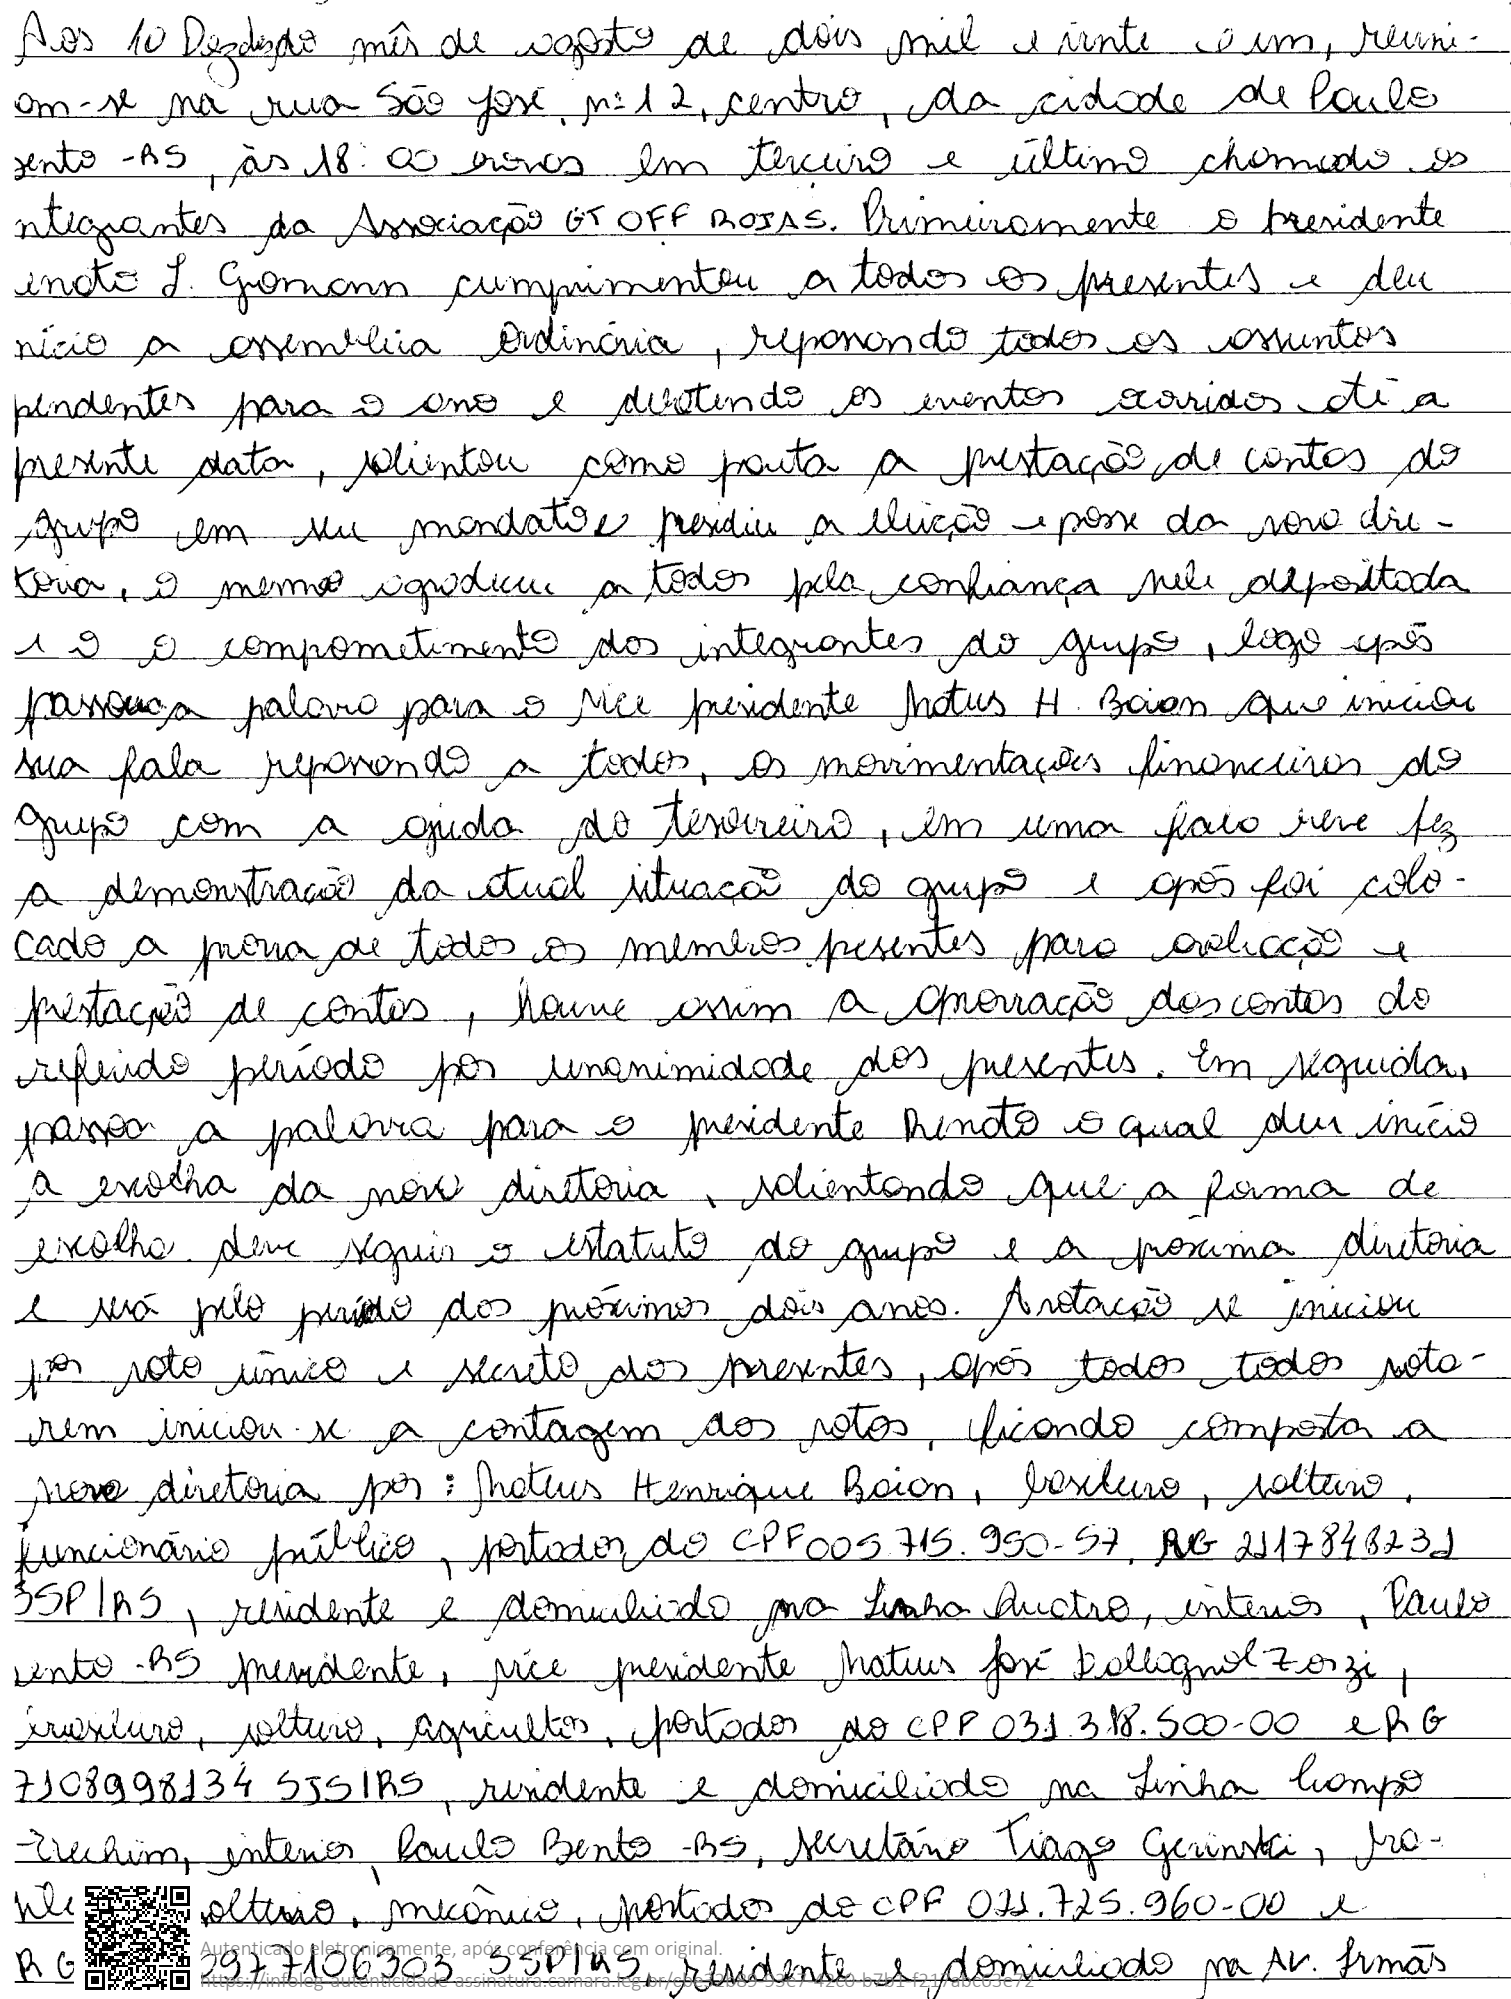 Aos 10 Dez dias do mês de agosto de dois mil e vinte e um, reuni-
am-se na rua São José, nº 12, centro, da cidade de Paulo
ento -RS, às 18:00 horas em terceiro e último chamado os
ntegrantes da Associação GT OFF ROJAS. Primeiramente o presidente
enato L. Gromann cumprimentou a todos os presentes e deu
nício a assembleia Ordinária, repassando todos os assuntos
pendentes para o ano e os eventos ocorridos até a
presente data, salientou como pauta a prestação de contas do
grupo em seu mandato e presidiu a eleição e posse da nova dire-
toria, o mesmo agradeceu a todos pela confiança nele depositada
e o o comprometimento dos integrantes do grupo, logo após
passou a palavra para o vice presidente Mateus H. Baion que iniciou
sua fala repassando a todos, as movimentações financeiras do
grupo com a ajuda do tesoureiro, em uma fala breve fez
a demonstração da atual situação do grupo e após foi colo-
cado a prova de todos os membros presentes para avaliação e
prestação de contas, houve assim a aprovação das contas do
referido período por unanimidade dos presentes. Em seguida,
passou a palavra para o presidente Renato o qual deu início
a escolha da nova diretoria, salientando que a forma de
escolha deve seguir o estatuto do grupo e a próxima diretoria
e será pelo período dos próximos dois anos. A votação se iniciou
por voto único e secreto dos presentes, após todos todos vota-
rem iniciou-se a contagem dos votos, ficando composta a
nova diretoria por: Mateus Henrique Baion, brasileiro, solteiro,
funcionário público, portador do CPF 005.715.950-57, RG 2117848231
SSP/RS, residente e domiciliado na Linha Quatro, interior, Paulo
ento -RS presidente, vice presidente Mateus José Dallagnol Zorzi,
brasileiro, solteiro, agricultor, portador do CPF 031.318.500-00 e RG
7108998134 SJS/RS, residente e domiciliado na Linha Campo
Erechim, interior, Paulo Bento -RS, secretário Tiago Gerinski, bra-
sile olteiro, mecânico, portador do CPF 021.725.960-00 e
RG 2977106303 SSP/RS, residente e domiciliado na Av. Irmãs
Autenticado eletronicamente, após conferência com original.